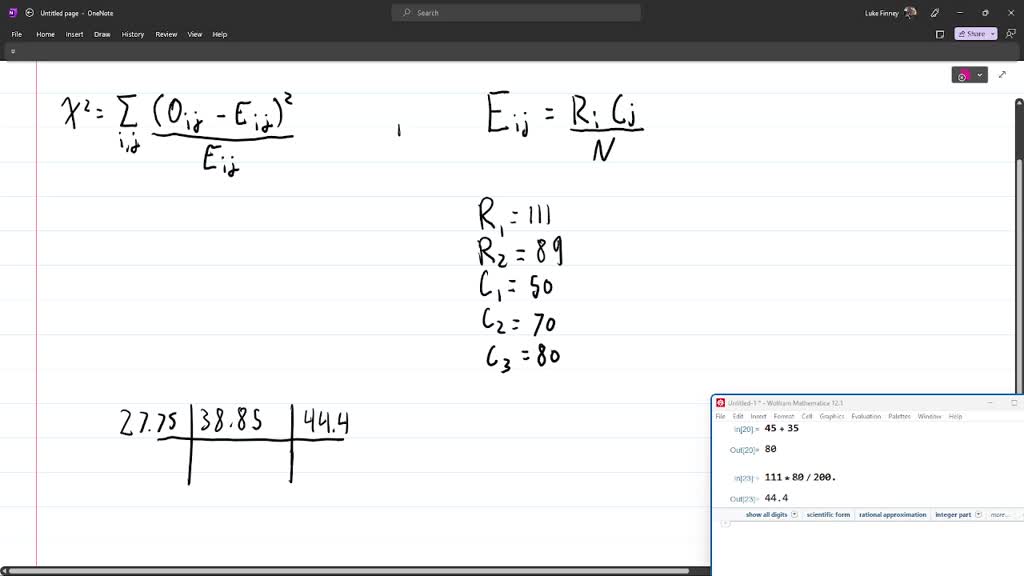 Untitled page - OneNote
Search
Luke Finney
File Home Insert Draw History Review View Help
Share
χ² = Σ i,j (O_ij - E_ij)² / E_ij , E_ij = R_i C_j / N
R₁ = 111
R₂ = 89
C₁ = 50
C₂ = 70
C₃ = 80
27.75 38.85 44.4
Untitled-1 * - Wolfram Mathematica 12.1
File Edit Insert Format Cell Graphics Evaluation Palettes Window Help
In[20]:= 45 + 35
Out[20]= 80
In[23]:= 111 * 80 / 200.
Out[23]= 44.4
show all digits scientific form rational approximation integer part more...